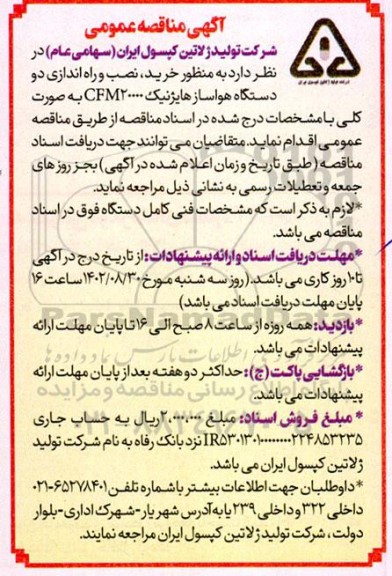 آگهی مناقصه عمومی
شرکت تولید ژلاتین کپسول ایران (سهامی عام) در
نظر دارد به منظور خرید، نصب و راه اندازی دو
دستگاه هواساز هایژنیک CFM۲۰۰۰۰ به صورت
کلی با مشخصات درج شده در اسناد مناقصه از طریق مناقصه
عمومی اقدام نماید. متقاضیان می توانند جهت دریافت اسناد
مناقصه (طبق تاریخ و زمان اعلام شده در آگهی) بجز روز های
جمعه و تعطیلات رسمی به نشانی ذیل مراجعه نماید.
*لازم به ذکر است که مشخصات فنی کامل دستگاه فوق در اسناد
مناقصه می باشد.
*مهلت دریافت اسناد و ارائه پیشنهادات: از تاریخ درج در آگهی
تا ۱۰ روز کاری می باشد. (روز سه شنبه مورخ ۱۴۰۲/۰۸/۳۰ ساعت ۱۶
پایان مهلت دریافت اسناد می باشد)
*بازدید: همه روزه از ساعت ۸ صبح الی ۱۶ تا پایان مهلت ارائه
پیشنهادات می باشد.
*بازگشایی پاکت (ج): حداکثر دو هفته بعد از پایان مهلت ارائه
پیشنهادات می باشد.
* مبلغ فروش اسناد: مبلغ ۲.۰۰۰.۰۰۰ ریال به حساب جاری
نزد بانک رفاه به نام شرکت تولید
ژلاتین کپسول ایران می باشد.
*داوطلبان جهت اطلاعات بیشتر با شماره تلفن ۶۵۲۷۸۴۰۱-۰۲۱
داخلی ۳۲۲ و داخلی ۲۳۹ یا به آدرس شهریار-شهرک اداری-بلوار
دولت، شرکت تولید ژلاتین کپسول ایران مراجعه نمایند.
ParsNamadData